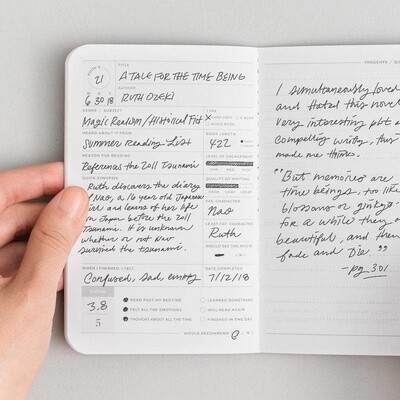 21
6 30 18
TITLE
A TALE FOR THE TIME BEING
AUTHOR
RUTH OZEKI
GENRE / SUBJECT
Magic Realism/Historical Fict
TYPE
X
HEARD ABOUT IT FROM
Summer Reading List
BOOK LENGTH
422
REASON FOR READING
References the 2011 Tsunami
LEVEL OF ENGAGEMENT
QUICK SYNOPSIS
Ruth discovers the diary
of Nao, a 16 year old Japanese
girl and learns of her life
in Japan before the 2011
Tsunami. It is unknown
whether or not Nao
survived the tsunami.
QUALITY OF WRITING
FAV CHARACTER
Nao
LEAST FAV CHARACTER
Ruth
WOULD SEE THE MOVIE
WHEN I FINISHED, I FELT...
Confused, sad, empty
DATE COMPLETED
7/12/18
3.8
5
READ PAST MY BEDTIME
FELT ALL THE EMOTIONS
THOUGHT ABOUT ALL THE TIME
LEARNED SOMETHING
WILL READ AGAIN
FINISHED IN ONE DAY
WOULD RECOMMEND Y / N
THOUGHTS /
I simultaneously loved
and hated this novel
very interesting plot a
compelling writing, this
made me things.
"But memories are
time beings, too like
blossoms or ginkgo
for a while they a
beautiful, and then
fade and die."
-pg 301